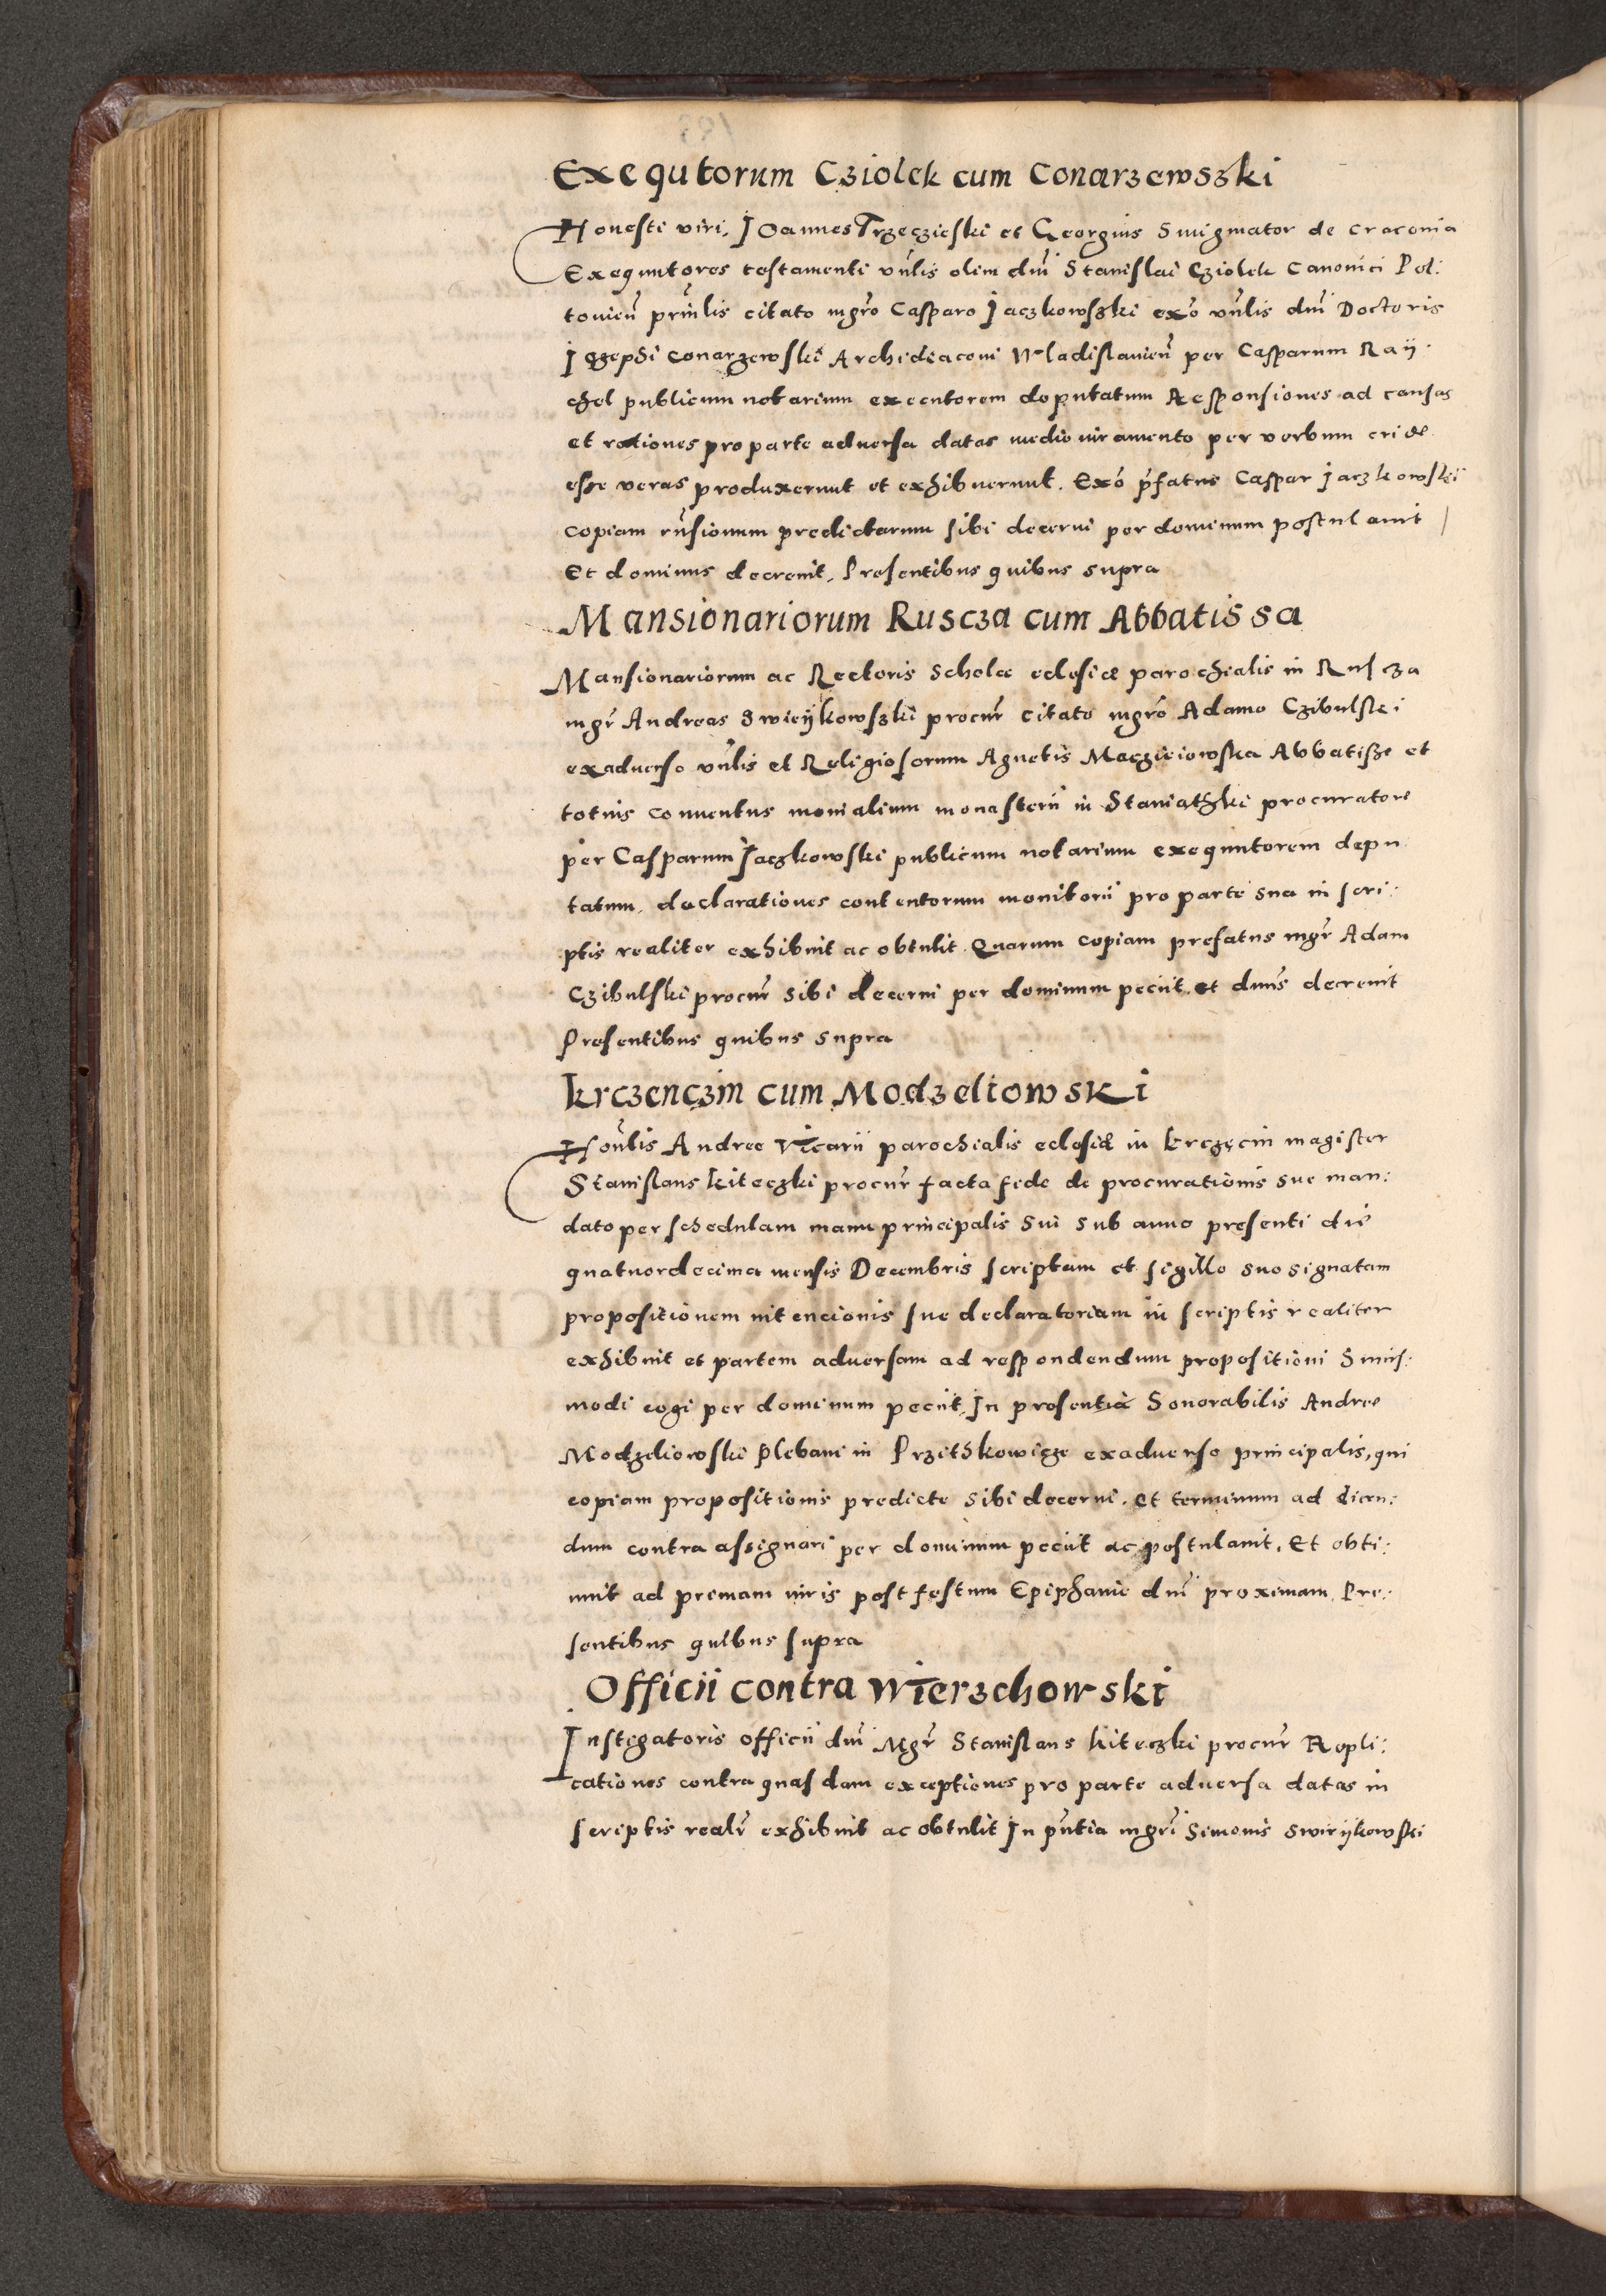 Exequtorum Cziolek cum Conarzewszki
Honesti viri, Joannes Trzeczieski et Georgius Smigmator de Craconia
Exequutores testamenti vnlis olim dni Stanislai Cziolek Canonici Pol:
tovien prinlis citato mgro Casparo Jaczkowszki exo vnlis dni Doctoris
Conarzewski Archidiaconi Wladislavien per Casparum Raÿ:
chel publicum notarium executorem deputatum Responsiones ad causas
et rationes pro parte adversa datas medio iuramento per verbum cride
esse veras produxerunt et exhibuerunt. Exo pfatus Caspar Jaczkowski
copiam rnsionum predictarum sibi decerni per dominum postulavit
Et dominus decrevit, Presentibus quibus supra
Mansionariorum Ruscza cum Abbatissa
Mansionariorum ac Rectoris Scholæ eclesiæ parochialis in Ruscza
mgr Andreas Swieÿkowszki procur citato mgro Adamo Czibulski
exadverso vnlis et Religiosorum Agnetis Macziciowska Abbatisze et
totius conventus monialium monasterii in Staniathki procuratore
per Casparum Jaczkowski publicum notarium exequutorem depu
tatum, declarationes contentorum monitorii pro parte sua in scri:
ptis realiter exhibuit ac obtulit. Quarum copiam prefatus mgr Adam
Czibulski procur sibi decerni per dominum peciit, et dnus decrevit
Presentibus quibus supra
Krczenczin cum Modzeliowski
Honlis Andree Vicarii parochialis eclesiæ in Krczęcin magister
Stanislaus Kiteczki procur facta fide de procurationis sue man:
dato per schedulam manu principalis sui sub anno presenti die
quatuordecima mensis Decembris scriptam et sigillo suo signatam
propositionem intencionis sue declaratoriam in scriptis realiter
exhibuit et partem adversam ad respondendum propositioni huius:
modi cogi per dominum peciit, In presentia honorabilis Andree
Modzeliowski Plebani in Przithkowicze exadverso principalis, qui
copiam propositionis predicte sibi decerni, et terminum ad dicen:
dum contra assignari per dominum peciit ac postulavit, Et obti:
nuit ad primam iuris post festum Epiphanie dni proximam, Pre:
sentibus quibus supra
Officii contra Wierzchowski
Instigatoris officii dni Mgr Stanislaus Kiteczki procur Repli:
cationes contra quasdam exceptiones pro parte adversa datas in
scriptis realr exhibuit ac obtulit In pntia mgri Simonis Swieÿkowski